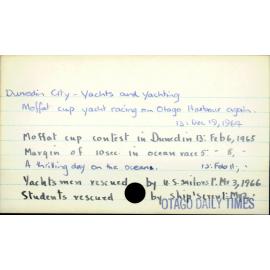 Dunedin City - Yachts and Yachting
Moffat cup yacht racing on Otago Harbour again.
13: Dec 19, 1964
Moffat cup contest in Dunedin 13: Feb 6, 1965
Margin of 10 sec in ocean race 5 - 8, -
A thrilling day on the oceans. 13: Feb 11, -
Yachtsmen rescued by U.S. sailors 1: Mr 3, 1966
Students rescued by ship's crew:
OTAGO DAILY TIMES